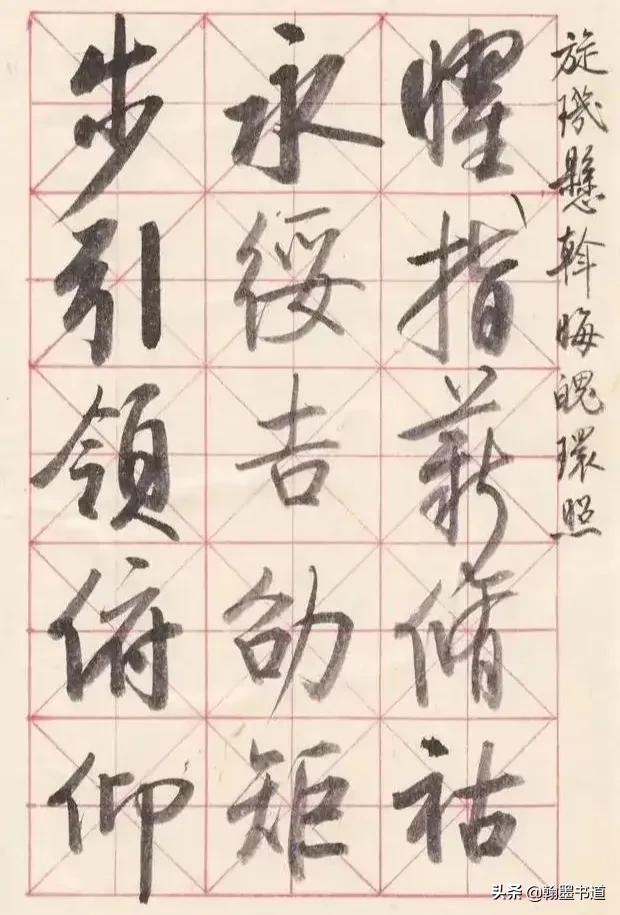 旋璣懸斡晦魄環照
耀指薪脩祜
永綏吉劭矩
步引領俯仰
头条 @翰墨书道